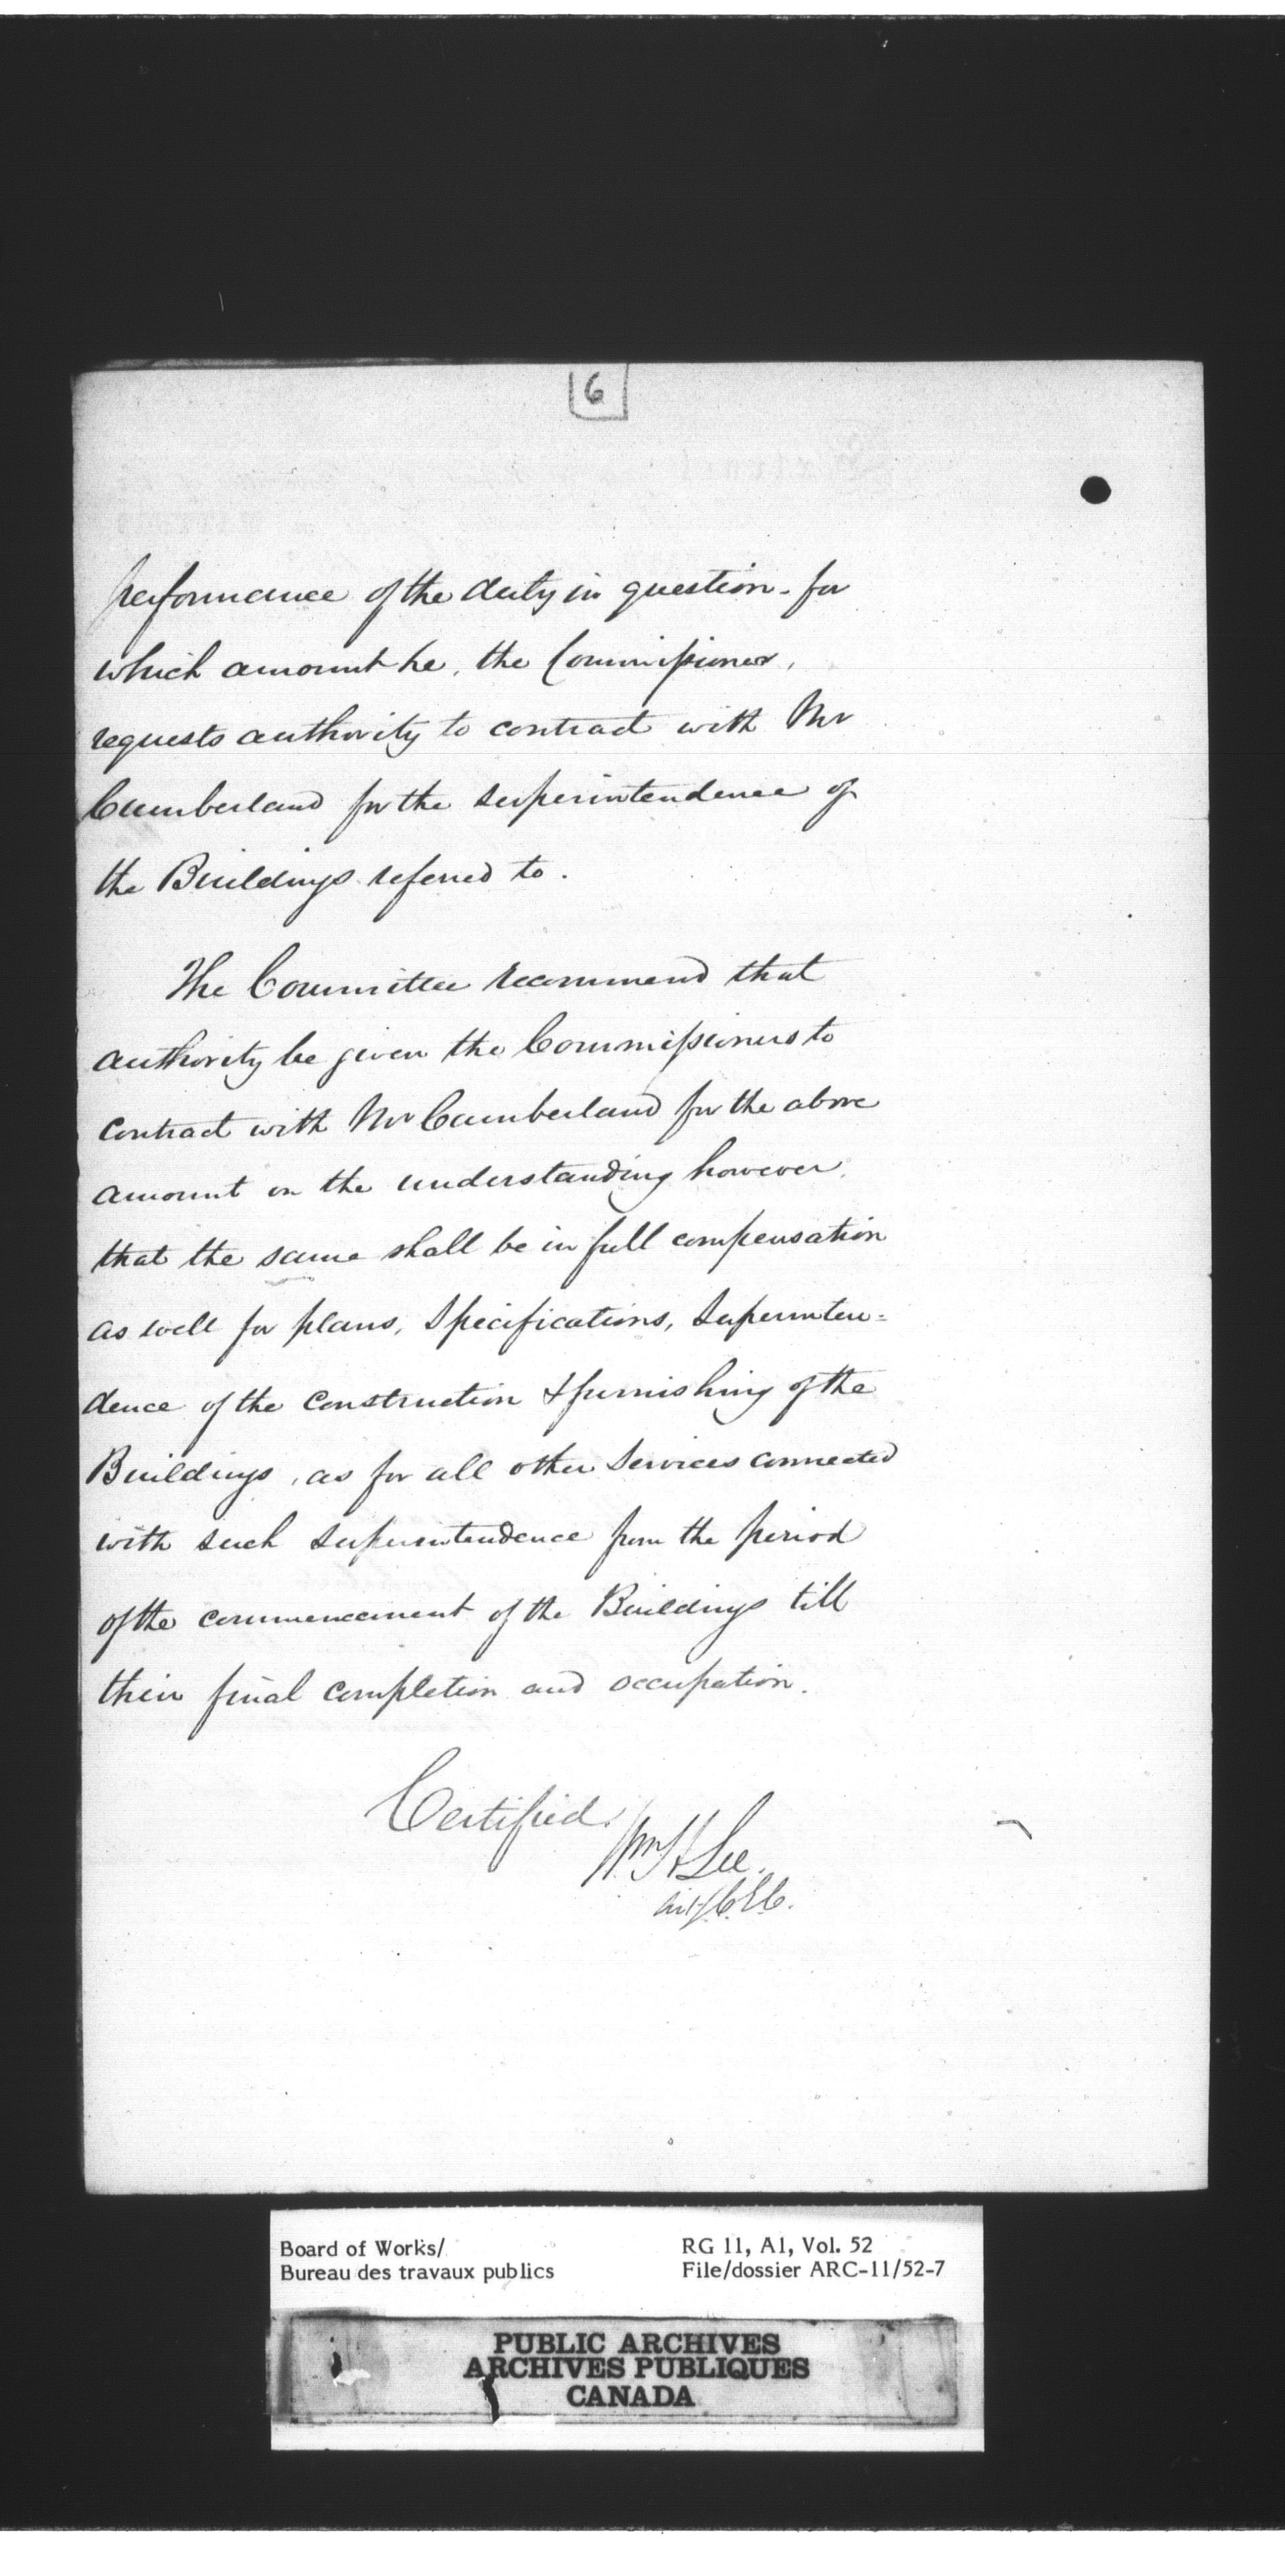 6
performance of the duty in question - for
which amount he, the Commissioner,
requests authority to contract with Mr
Cumberland for the superintendence of
the Buildings referred to.
The Committee recommend that
authority be given the Commissioners to
contract with Mr Cumberland for the above
amount on the understanding however,
that the same shall be in full compensation
as well for plans, Specifications, Superinten=
dence of the construction & furnishing of the
Buildings, as for all other Services connected
with such superintendence from the period
of the commencement of the Buildings till
their final completion and occupation.
Certified.
Wm H Lee.
C.E.C.
Board of Works/
Bureau des travaux publics
RG 11, A1, Vol. 52
File/dossier ARC-11/52-7
PUBLIC ARCHIVES
ARCHIVES PUBLIQUES
CANADA